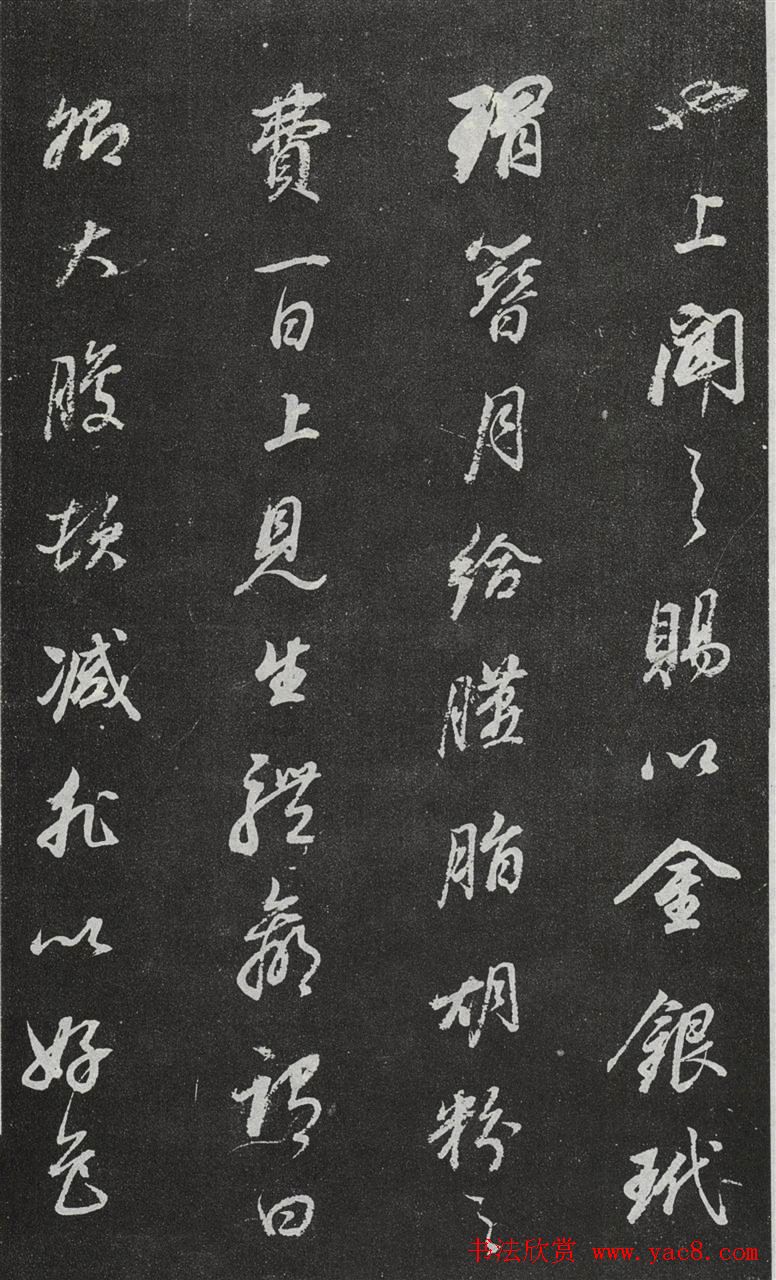 也上聞之賜以金銀玳
瑁簪月給臙脂胡粉之
費一日上見生體羸謂曰
卿大腹頓減非以好色
书法欣赏 www.yac8.com